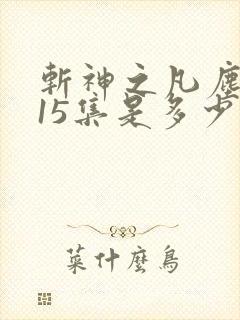 斬神之凡塵
15集是多少
菜什麼鳥